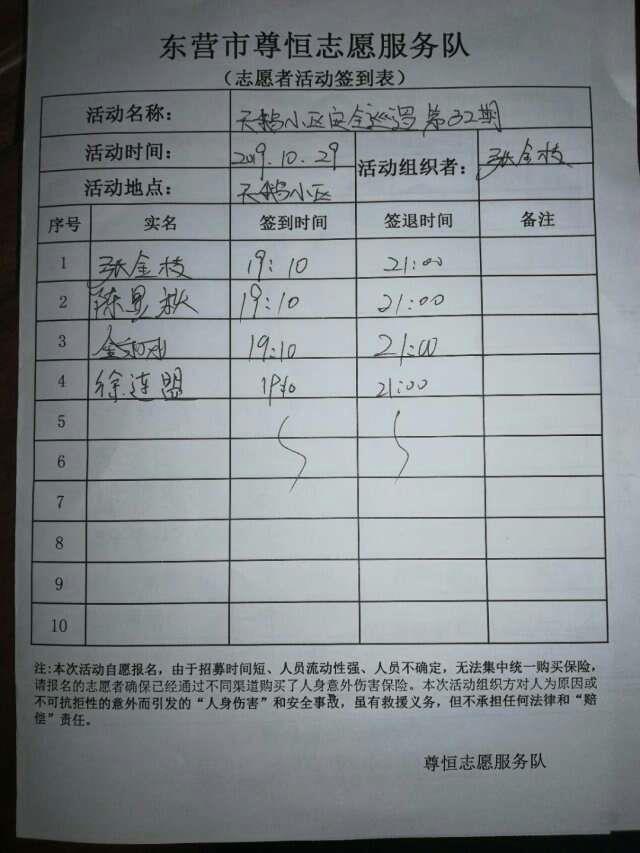 东营市尊恒志愿服务队
（志愿者活动签到表）
活动名称： 天鹅小区安全巡逻第32期
活动时间： 2019.10.29 活动组织者： 张金枝
活动地点： 天鹅小区
序号 实名 签到时间 签退时间 备注
1 张金枝 19:10 21:00
2 陈显秋 19:10 21:00
3 19:10 21:00
4 徐连盟 19:10 21:00
5
6
7
8
9
10
注:本次活动自愿报名，由于招募时间短、人员流动性强、人员不确定，无法集中统一购买保险，
请报名的志愿者确保已经通过不同渠道购买了人身意外伤害保险。本次活动组织方对人为原因或
不可抗拒性的意外而引发的“人身伤害”和安全事故，虽有救援义务，但不承担任何法律和“赔
偿”责任。
尊恒志愿服务队